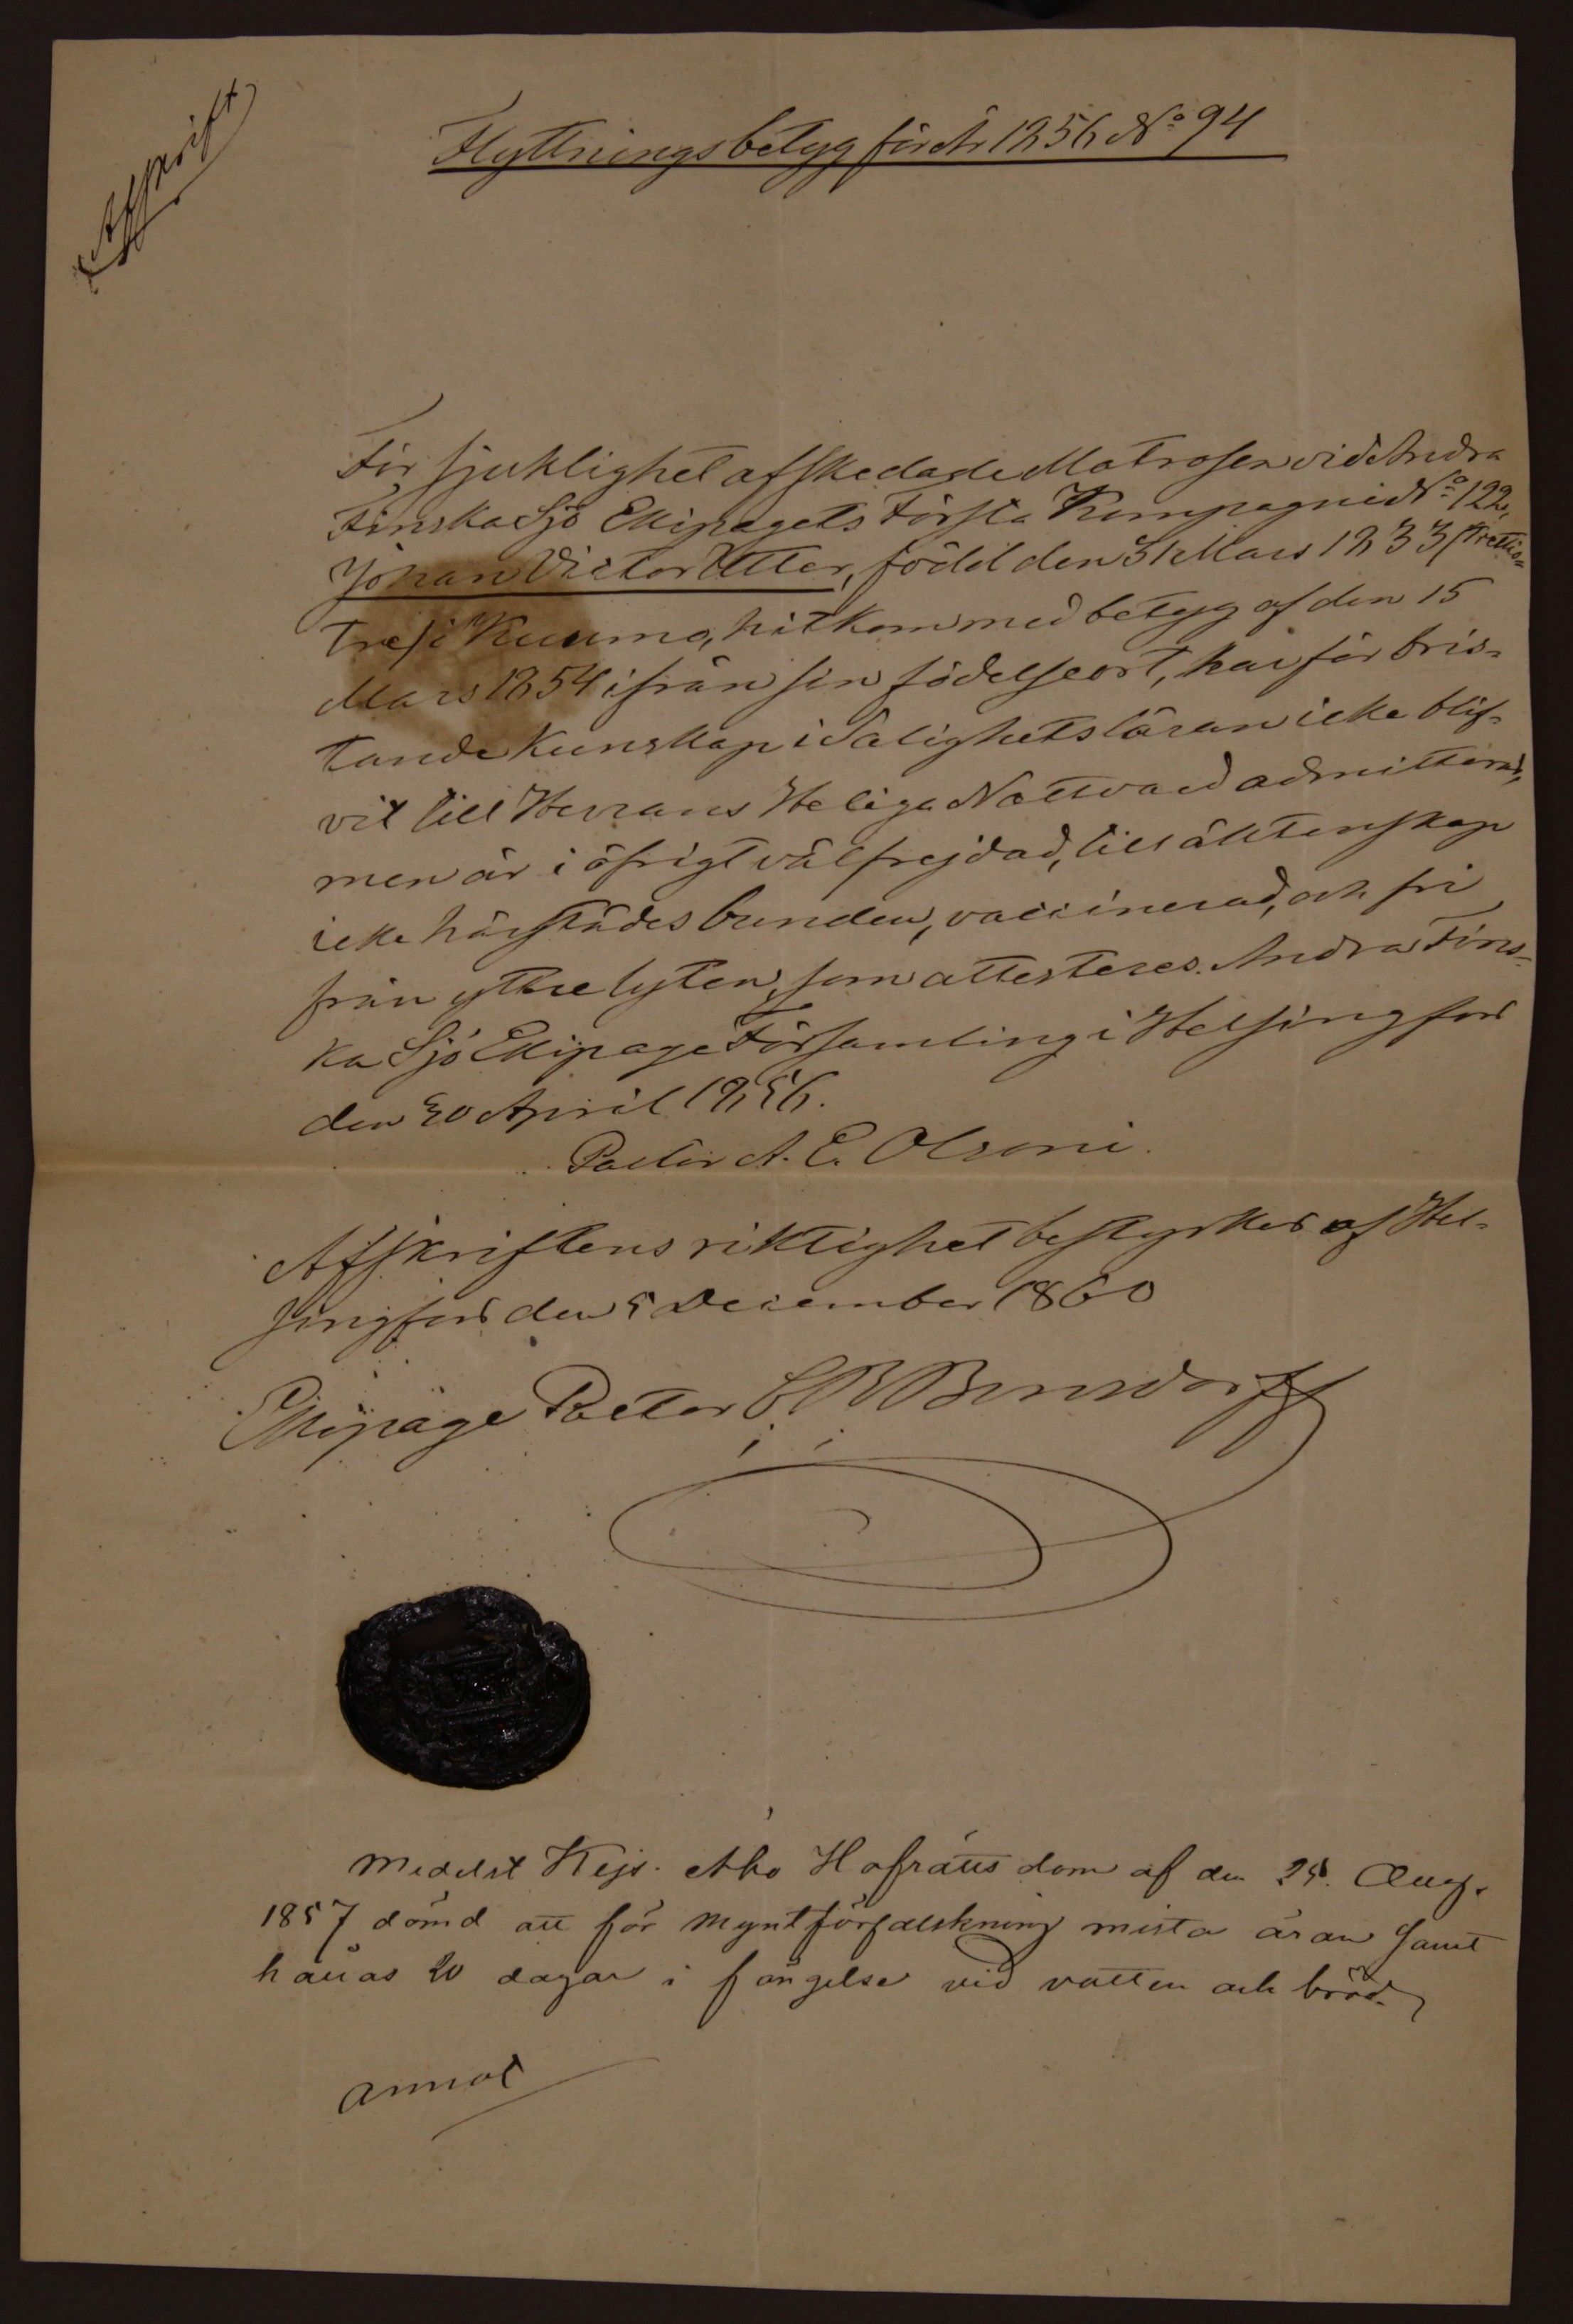 Afskrift
Flyttningsbetyg för År 1856 No 94
För sjuklighet afskedade Matrosen vid Andra
Finska Sjö Ekipagets Första Kompagnie No 122,
Johan Victor Utter, född den 31 Mars 1833 (Trettio-
tre) i Kuumo, hitkom med betyg af den 15
Mars 1854 ifrån sin födelseort, har för bris-
tande Kunskap i Salighetsläran icke blif-
vit till Herrans Heliga Nattvard admitterad,
men är i öfrigt välfrejdad, till äktenskap
icke härstädes bunden, vaccinerad, och fri
från yttre lyten, som attesteres. Andra Fins-
ka Sjö Ekipage Församling i Helsingfors
den 30 April 1856.
Pastor A. E. Olsoni.
Afskriftens riktighet bestyrkes af Hel-
singfors den 5 December 1860
Ekipage Pastor
Medelst Kejs. Åbo Hofrätts dom af den 25. Aug.
1857 dömd att för Myntförfalskning mista äran samt
hållas 20 dagar i fängelse vid vatten och bröd.
annot